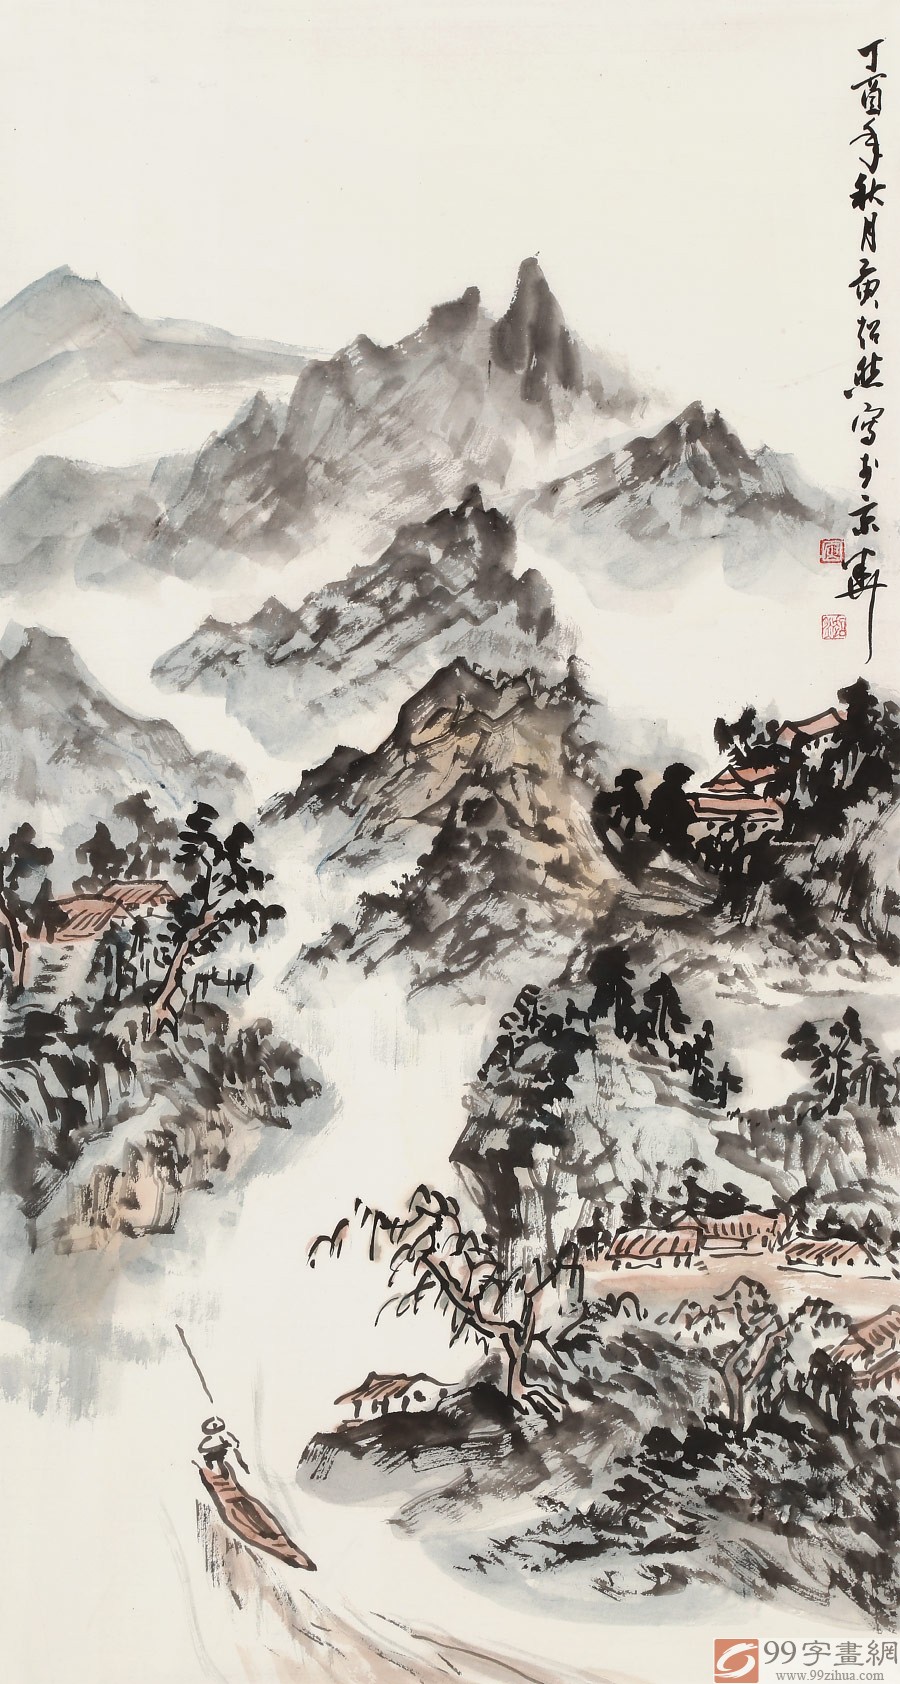 丁酉年秋月黄绍然写于京華
99字畫網
www.99zihua.com